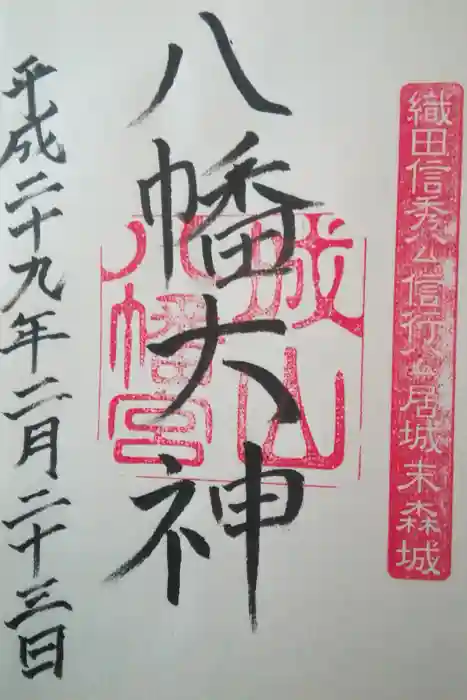 織田信秀公信行公居城末森城
八幡大神
城山
八幡宮
平成二十九年二月二十三日